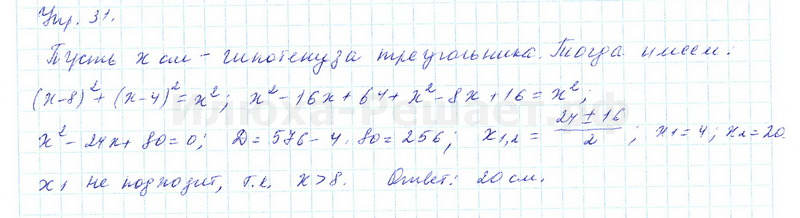 Упр. 31.
Пусть x см – гипотенуза треугольника. Тогда имеем:
(x-8)²+(x-4)²=x²; x²-16x+64+x²-8x+16=x²;
x²-24x+80=0; D=576-4·80=256; x₁,₂ = (24±16)/2; x₁=4; x₂=20
x₁ не подходит, т.к. x>8. Ответ: 20 см.